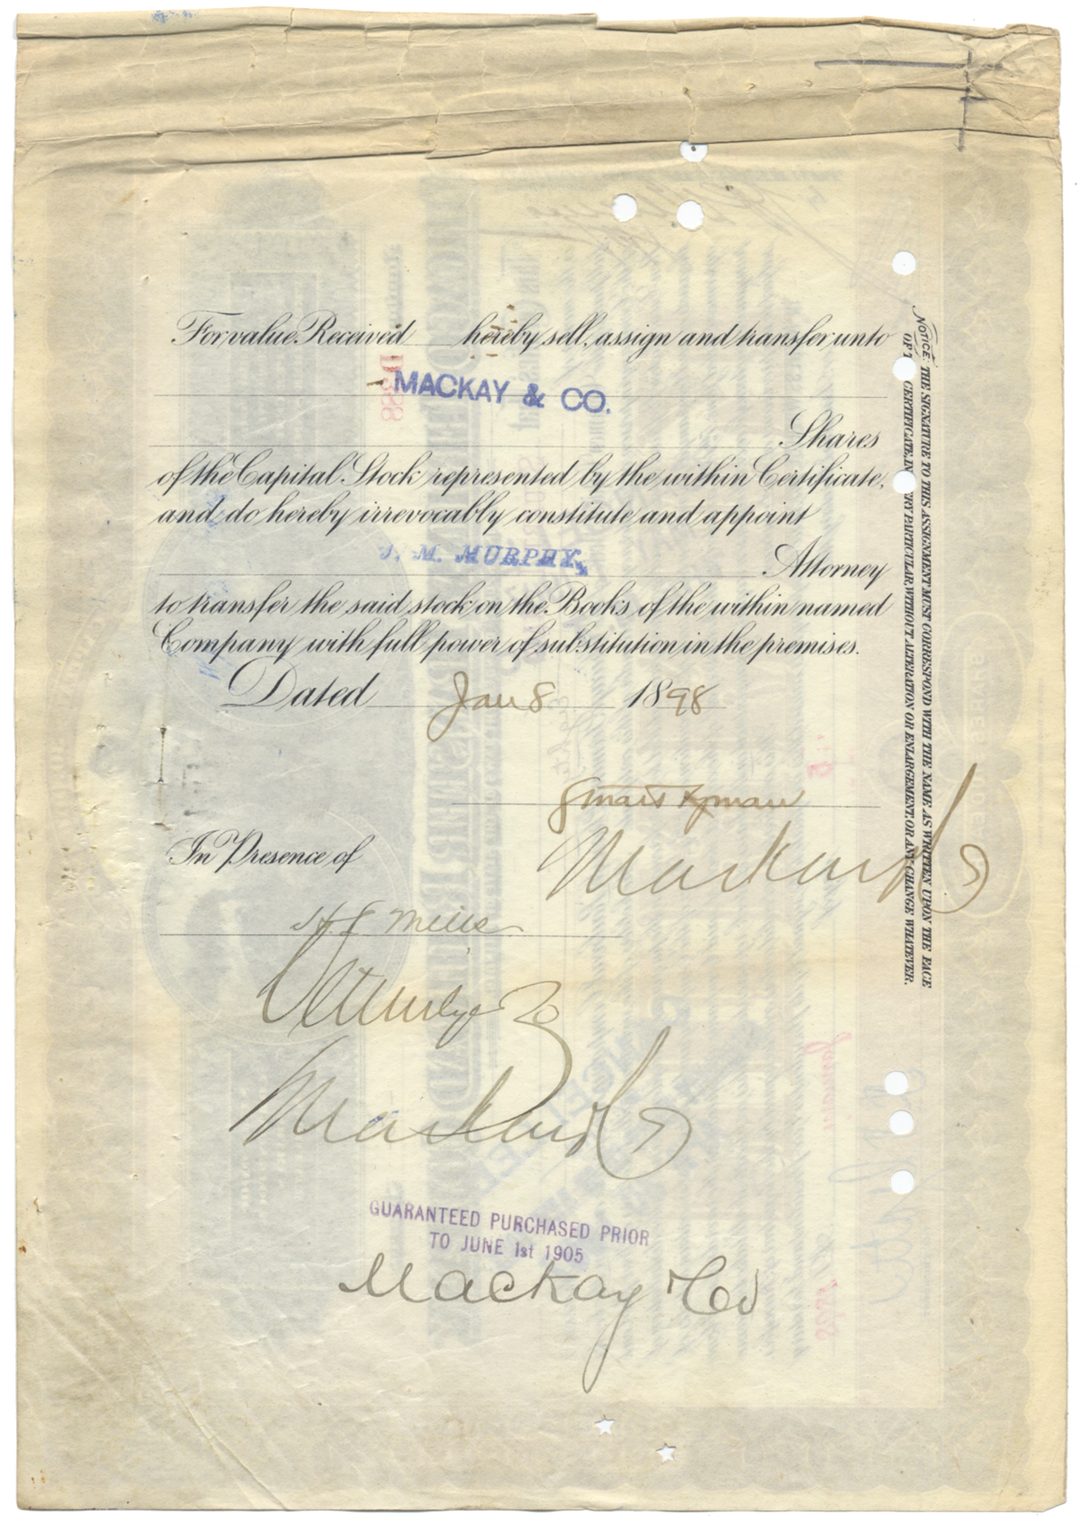 For value Received hereby sell, assign and transfer unto
MACKAY & CO.
Shares
of the Capital Stock represented by the within Certificate,
and do hereby irrevocably constitute and appoint
J. M. MURPHY,
Attorney
to transfer the said stock on the Books of the within named
Company with full power of substitution in the premises.
Dated Jan 8 1898
Mackay & Co
In Presence of
Mackay & Co
GUARANTEED PURCHASED PRIOR
TO JUNE 1st 1905
Mackay & Co
NOTICE THE SIGNATURE TO THIS ASSIGNMENT MUST CORRESPOND WITH THE NAME AS WRITTEN UPON THE FACE
CERTIFICATE, IN PARTICULAR WITHOUT ALTERATION OR ENLARGEMENT, OR ANY CHANGE WHATEVER.